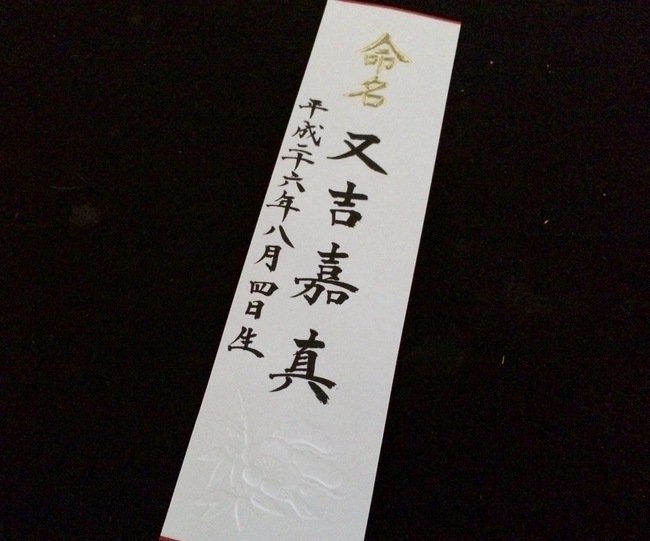 命名
又吉嘉真
平成二十六年八月四日生